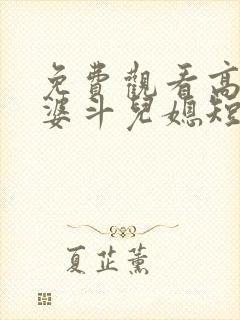 免費觀看高
婆斗兒媳短
夏芷薰